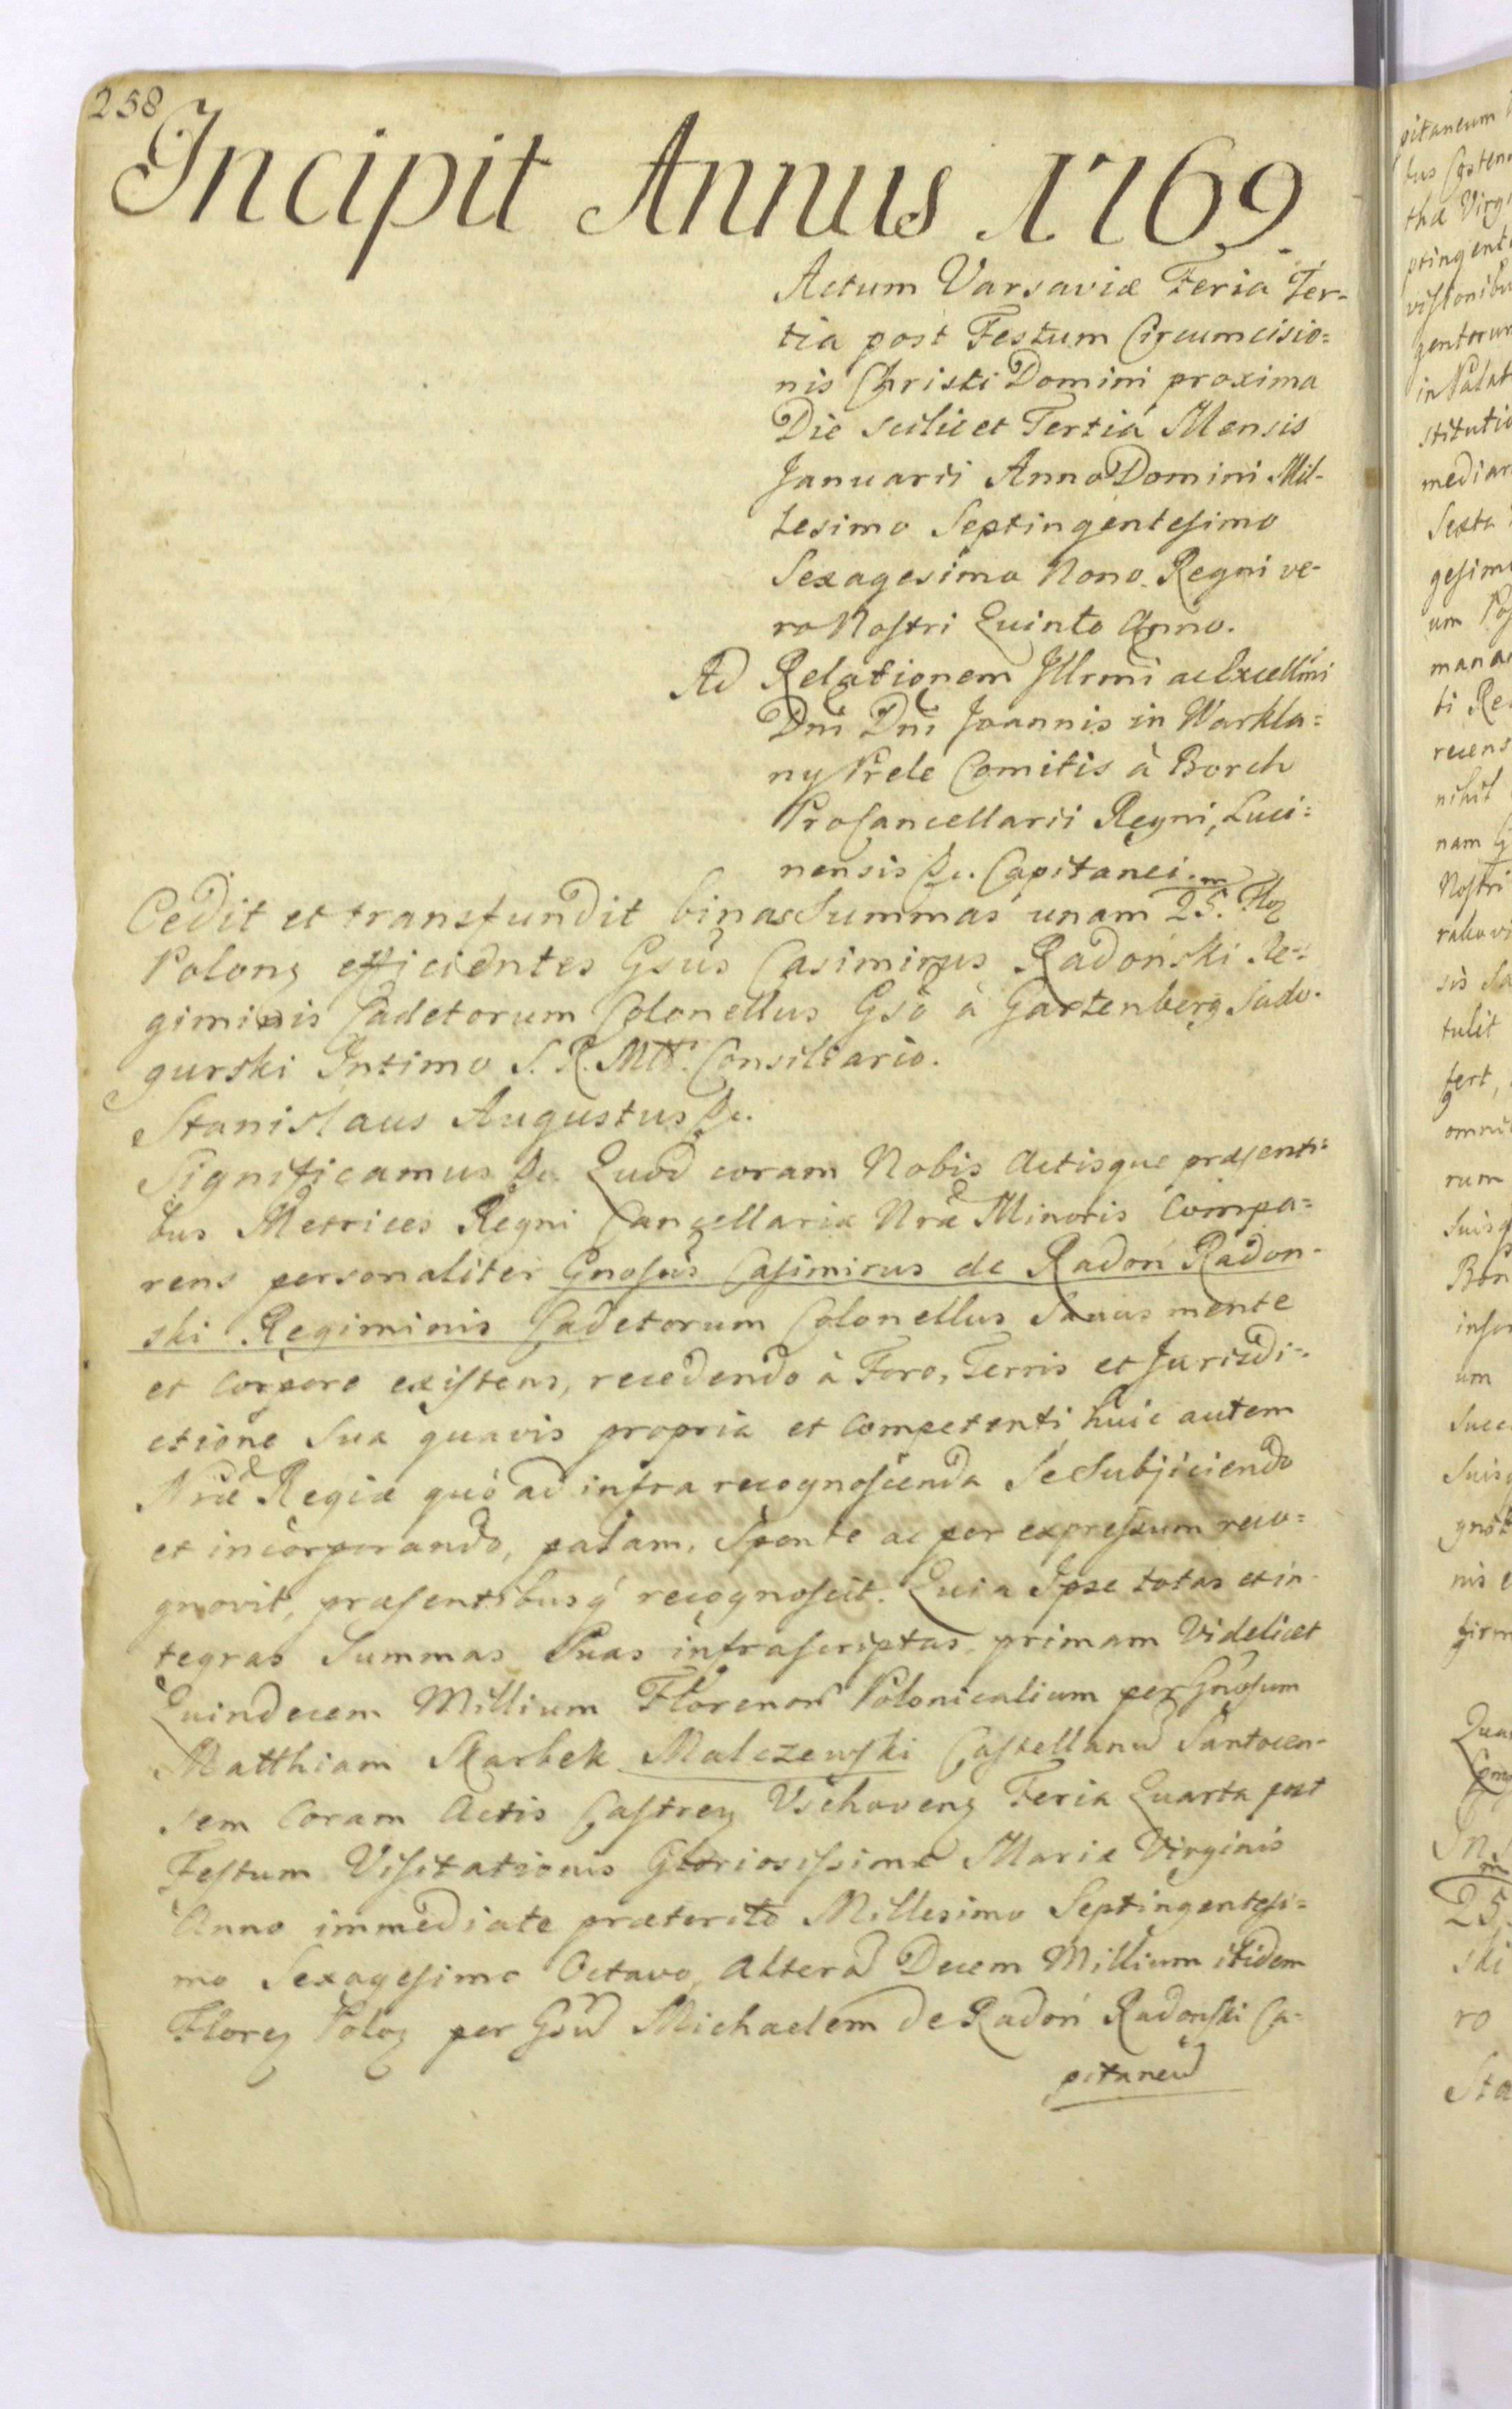 258
Incipit Annus 1769.
Actum Varsaviæ Feria Ter-
tia post Festum Circumcisio=
nis Christi Domini proxima
Die scilicet Tertia Mensis
Januarii Anno Domini Mil-
lesimo Septingentesimo
Sexagesimo Nono. Regni ve-
ro Nostri Quinto Anno.
Ad Relationem Jllrmi ac Excellmi
Dni Dni Joannis in Warkla=
ny Prele Comitis à Borch
ProCancellarii Regni, Luci=
nensis &c. Capitanei.
Cedit et transfundit binas Summas unam 25.m Floz
Polonz efficientes Gsus Casimirus Radoński Re=
giminis Cadetorum Colonellus Gso à Gartenberg Sado-
gurski Intimo S. R. Mtt. Consiliario.
Stanislaus Augustus &c.
Significamus &c. Quod coram Nobis Actisque præsenti=
bus Metrices Regni Cancellariæ Nræ Minoris Compa=
rens personaliter Gnosus Casimirus de Radoń Radon-
ski Regiminis Cadetorum Colonellus Sanus mente
et Corpore existens, recedendo à Foro, Terris et Jurisdi=
ctione Sua quavis propria et Competenti huic autem
Nræ Regiæ quo ad infra recognoscenda Se Subjiciendo
et incorporando, palam, Sponte ac per expressum reco=
gnovit, præsentibusq́ recognoscit. Quia Ipse totas et in-
tegras Summas Suas infrascriptas, primam Videlicet
Quindecem Millium Florenor Polonicalium per Gnosum
Matthiam Skarbek Malczewski Castellanu Santocen-
sem Coram Actis Castrenz Vschovenz Feria Quarta post
Festum Visitationis Gloriosissimæ Mariæ Virginis
Anno immediate præterito Millesimo Septingentesi=
mo Sexagesimo Octavo, altera Decem Millium itidem
Florez Poloz per Gsu Michaelem de Radoń Radonski Ca-
pitaneu
pitaneum
thæ Virg
ptingent
vissionibu
gentorum
in Palat
stitutio
mediar
Sexta
gesim
um Pos
mana
ti Re
recens
nihil
nam G
Nostri
rakovi
sis Sa
tulit
fert,
omni
rum
Suisq
Bon
infer
um
Succ
Suisq
gnos
nis e
firm
Qua
In
25.m
ski
ro
Sta